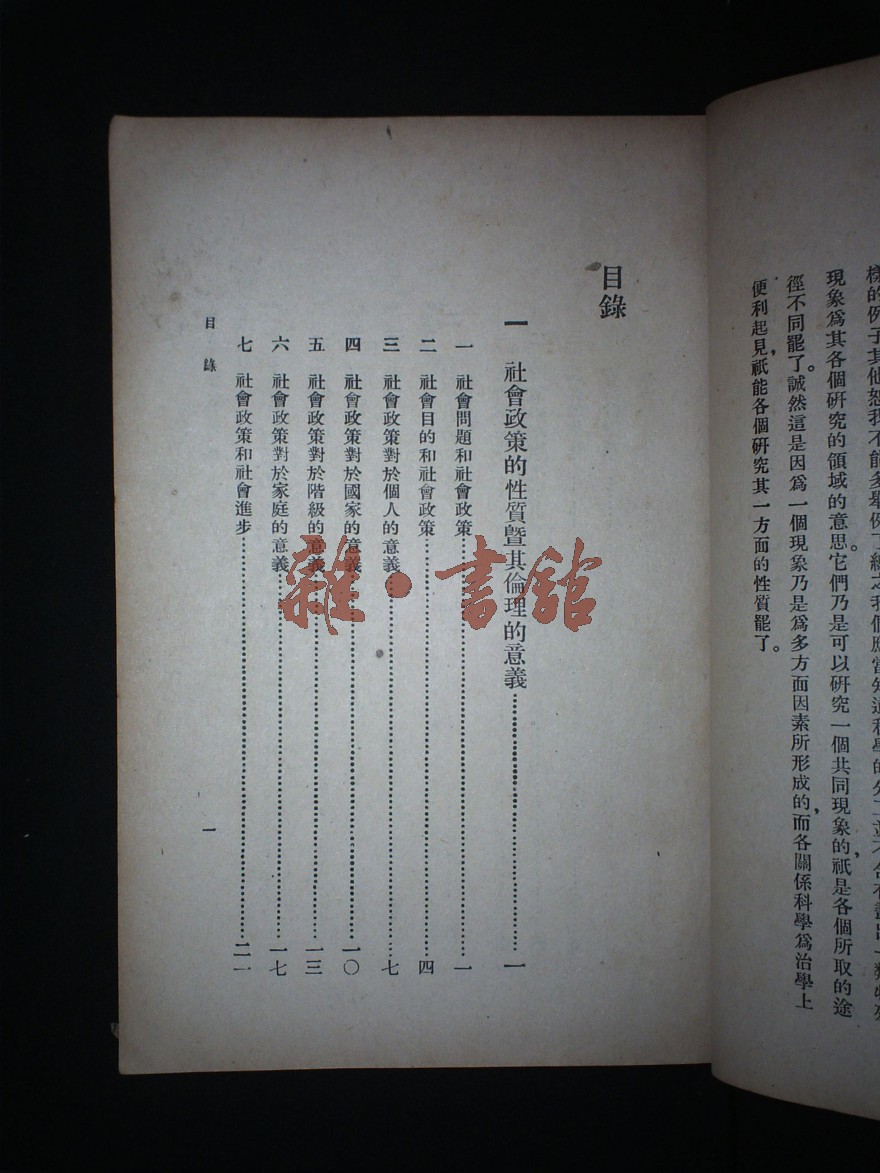 樣的例子其他恕我不能多舉例了總之我們應當知道科學的分工並不含有
現象爲其各個研究的領域的意思。它們乃是可以研究一個共同現象的，祇是各個所取的途
徑不同罷了。誠然這是因爲一個現象乃是爲多方面因素所形成的，而各關係科學爲治學上
便利起見，祇能各個研究其一方面的性質罷了。
目錄
一 社會政策的性質曁其倫理的意義……一
一 社會問題和社會政策……一
二 社會目的和社會政策……四
三 社會政策對於個人的意義……七
四 社會政策對於國家的意義……一〇
五 社會政策對於階級的意義……一三
六 社會政策對於家庭的意義……一七
七 社會政策和社會進步……二一
目錄 一
雜·書館